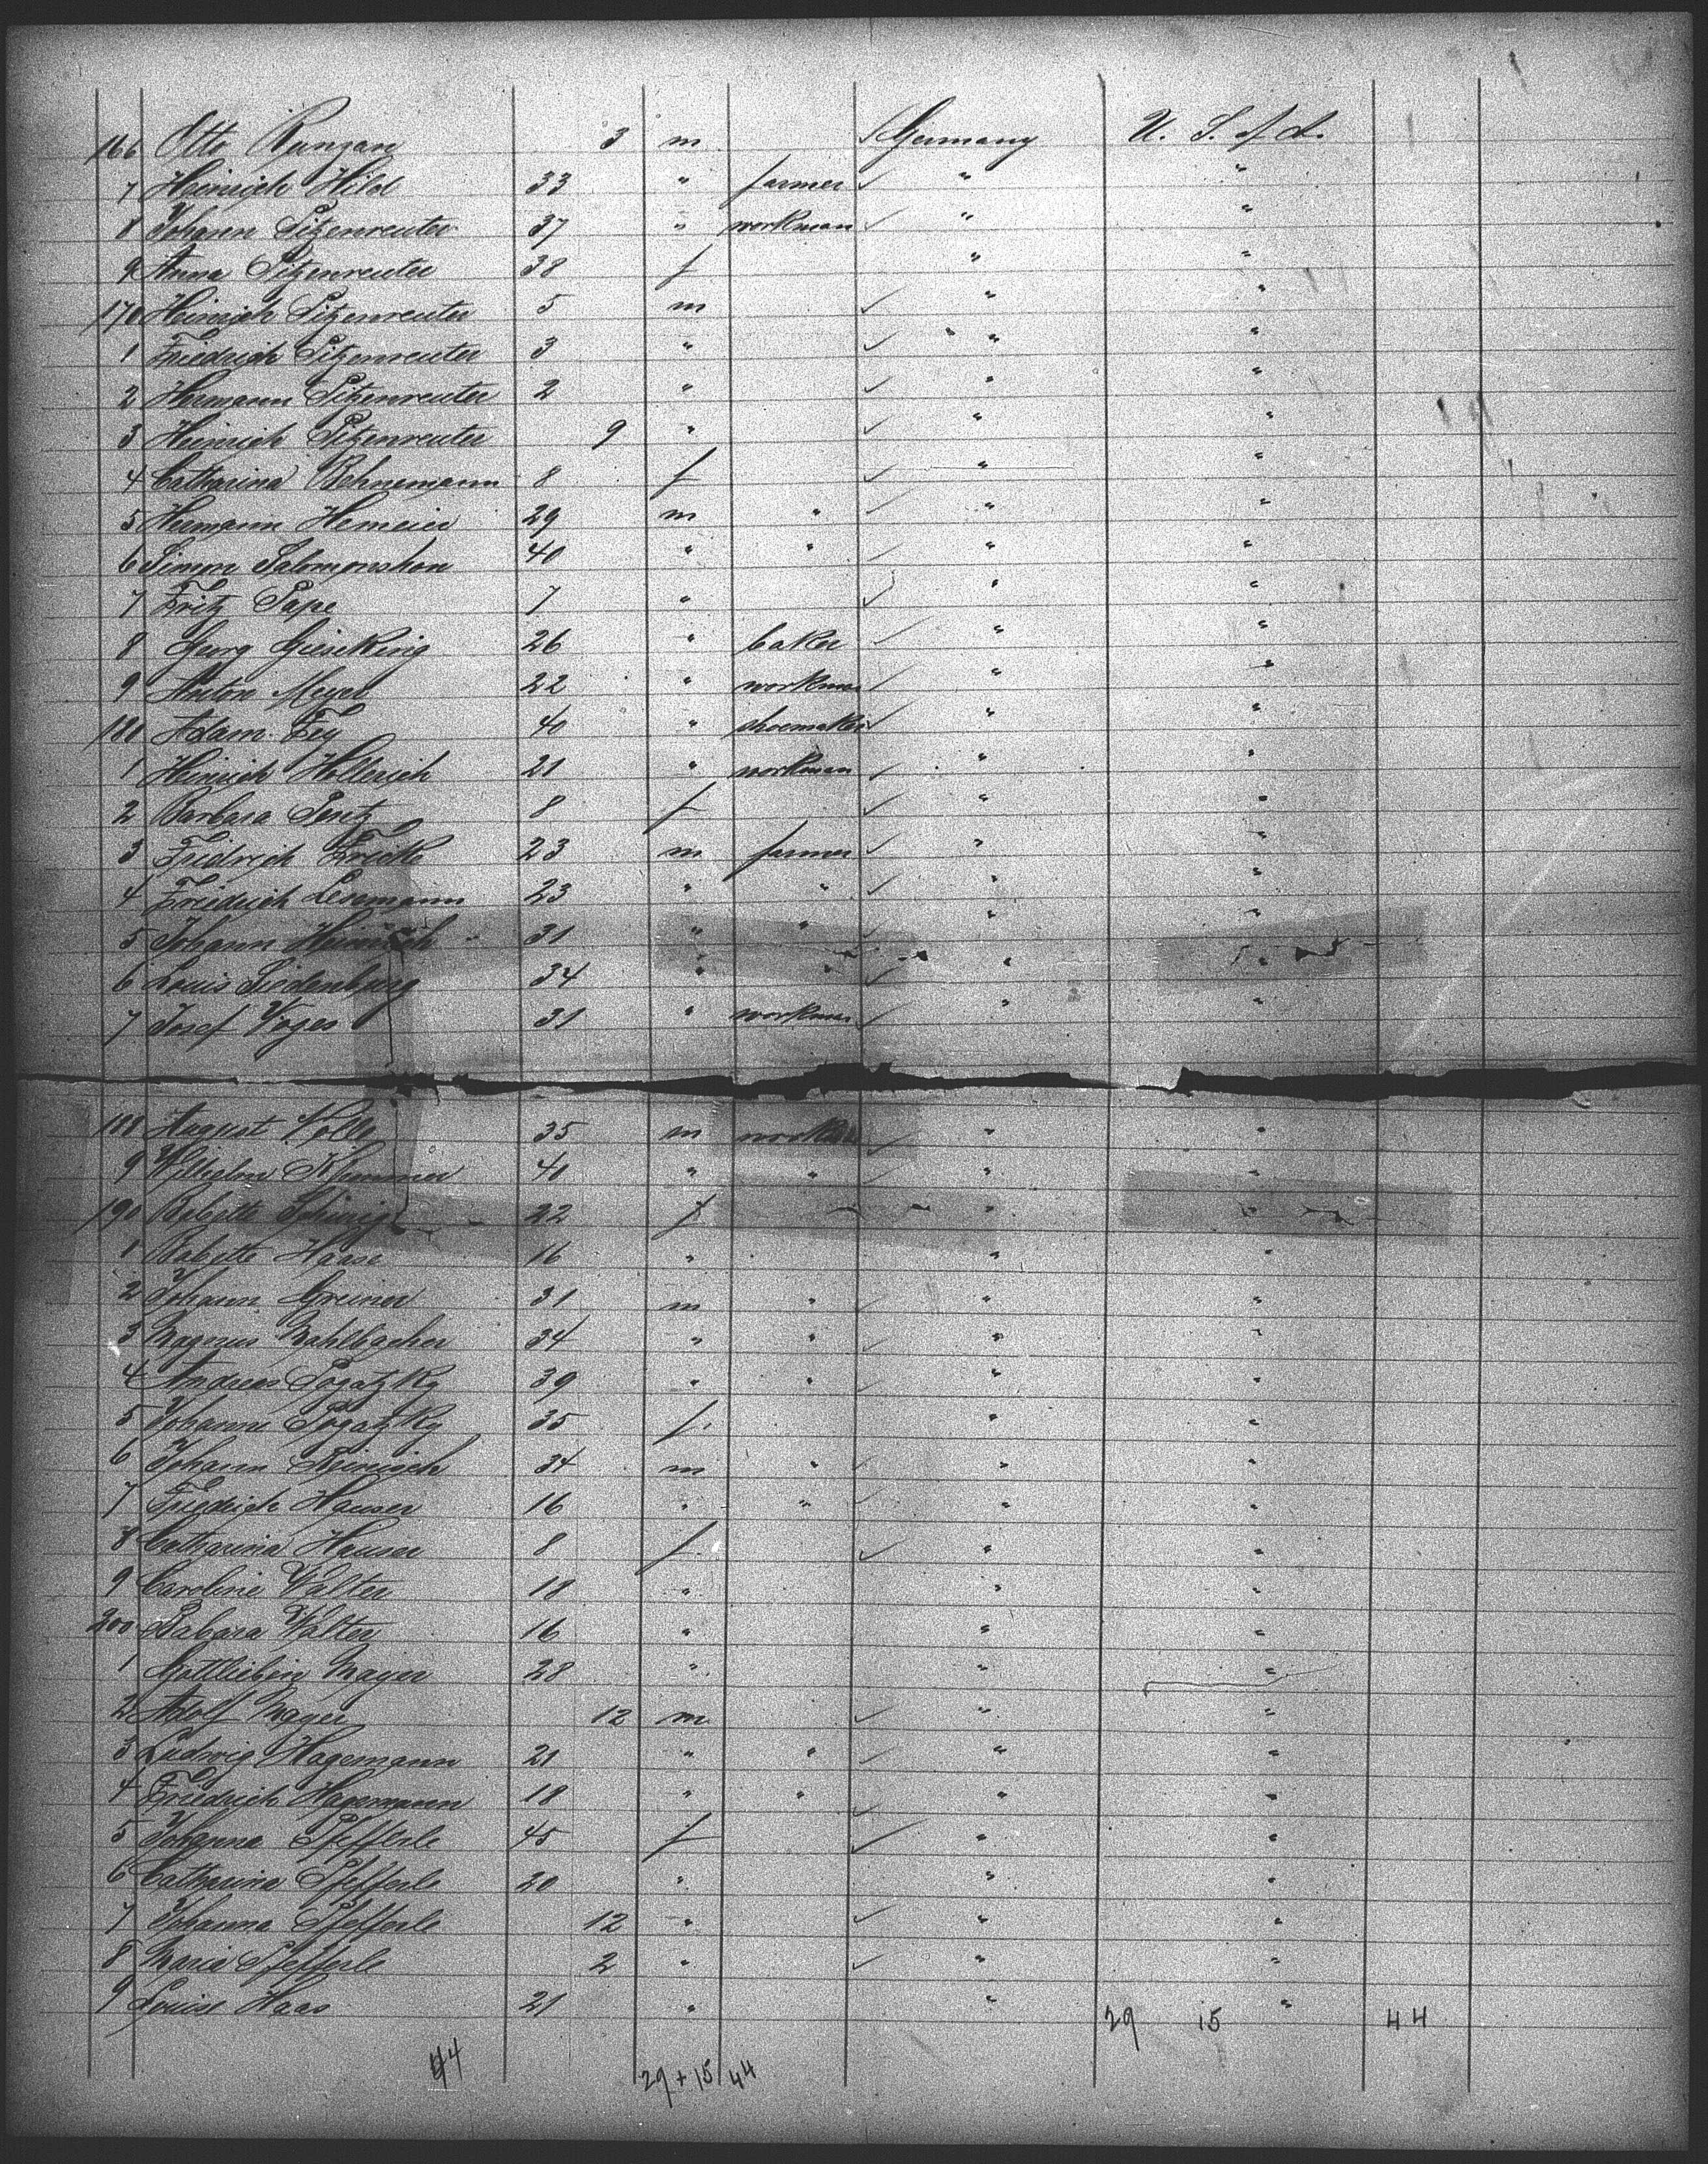 166 Otto Runzan 3 m Germany U. S. of A.
7 Heinrich Hild 33 " farmer " "
8 Johann Sitzenreuter 37 " workman " "
9 Anna Sitzenreuter 38 f " "
170 Heinrich Sitzenreuter 5 m " "
1 Friedrich Sitzenreuter 3 " " "
2 Hermann Sitzenreuter 2 " " "
3 Heinrich Sitzenreuter 9 " " "
4 Catharina Behnemann 8 f " "
5 Hermann Hemeier 29 m " " "
6 Simon Salomonshon 40 " " " "
7 Fritz Pape 7 " " "
8 Georg Gieseking 26 " baker " "
9 Anton Meyer 22 " workman " "
180 Adam Fey 40 " shoemaker " "
1 Heinrich Hollerich 21 " workman " "
2 Barbara 8 f " "
3 Friedrich Fricke 23 m farmer " "
4 Friedrich Lesemann 23 " " " "
5 Johann Heinrich 31 " " " "
6 Louis Sidenburg 34 " " " "
7 Josef Voges 31 " workman " "
188 August Nolle 35 m workman " "
9 Wilhelm 40 " " " "
190 Babette 22 f " "
1 Babette Haase 16 " " "
2 Johann Greiner 31 m " " "
3 Magnus Mahlbacher 34 " " " "
4 Andreas Pogatzky 39 " " " "
5 Johanne Pogatzky 35 f. " "
6 Johann Reinisch 34 m " " "
7 Friedrich Hauser 16 " " " "
8 Catharina Hauser 8 f " "
9 Caroline Walter 18 " " "
200 Babara Walter 16 " " "
1 Gottliebin Mayer 28 " " "
2 Adolf Mayer 12 m " "
3 Ludwig Hagemann 21 " " " "
4 Friedrich Hagemann 18 " " " "
5 Johanna Pfefferle 45 f " "
6 Catharina Pfefferle 20 " " "
7 Johanna Pfefferle 12 " " "
8 Maria Pfefferle 2 " " "
9 Louise Haas 21 " " "
29 15 44
44 29 + 15 44